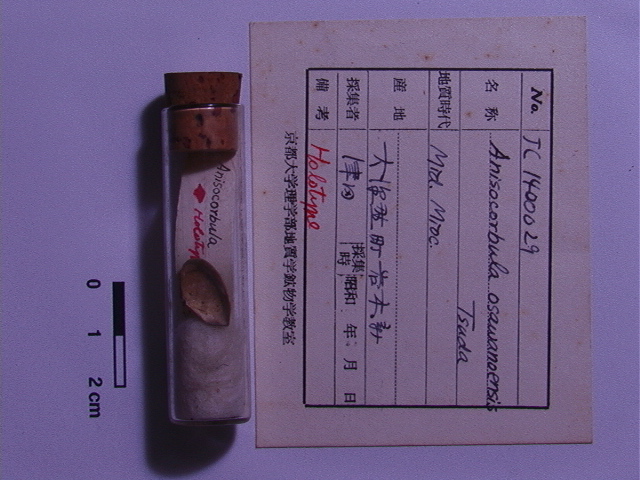 No. JC 1400029
名称 Anisocorbula osawanoensis
Tsuda
地質時代 Mid. Mioc.
産地
採集者 津田 採集時 昭和 年 月 日
備考 Holotype
京都大学理学部地質学鉱物学教室
Anisocorbula
Holotype
0 1 2 cm